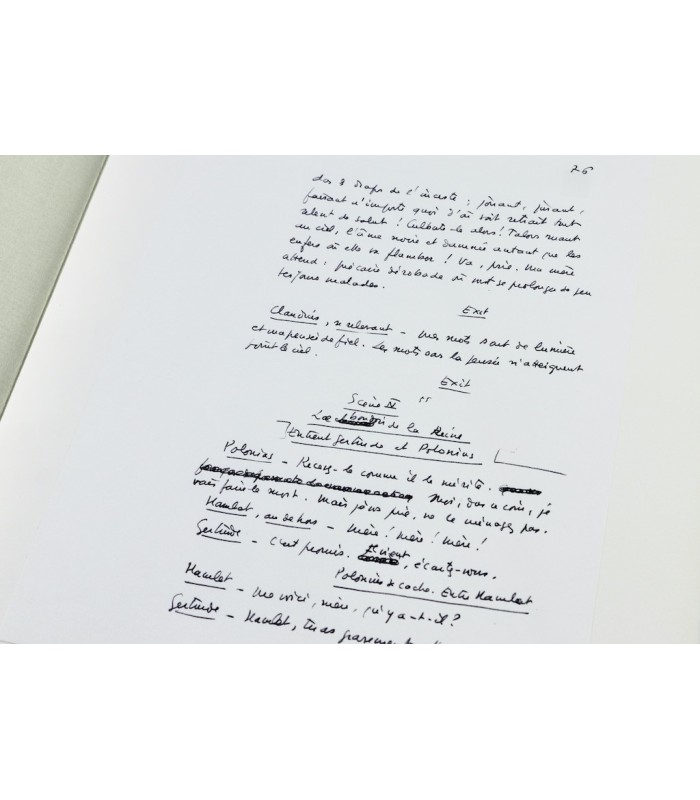 76
des draps de l'inceste ; jouant, jurant,
faisant n'importe quoi d'où soit retiré tout
relent de salut ! Culbute-le alors ! Talons ruant
au ciel, l'âme noire et damnée autant que les
enfers où elle va flamber ! Va, prie. Ma mère
attend : précaire dérobade où mot se prolonge de peu
tes jours malades.
Exit
Claudius, se relevant – Mes mots sont de lumière
et ma pensée de fiel. Les mots sans la pensée n'atteignent
point le ciel.
Exit
Scène IV
de la Reine
Entrent Gertrude et Polonius
Polonius – Recevez-le comme il le mérite.
Moi, dans ce coin, je
vais faire le mort. Mais je vous prie, ne le ménagez pas.
Hamlet, au dehors – Mère ! Mère ! Mère !
Gertrude – C'est promis. Il vient, écartez-vous.
Polonius se cache. Entre Hamlet
Hamlet – Me voici, mère, qu'y a-t-il ?
Gertrude – Hamlet, tu as gravement